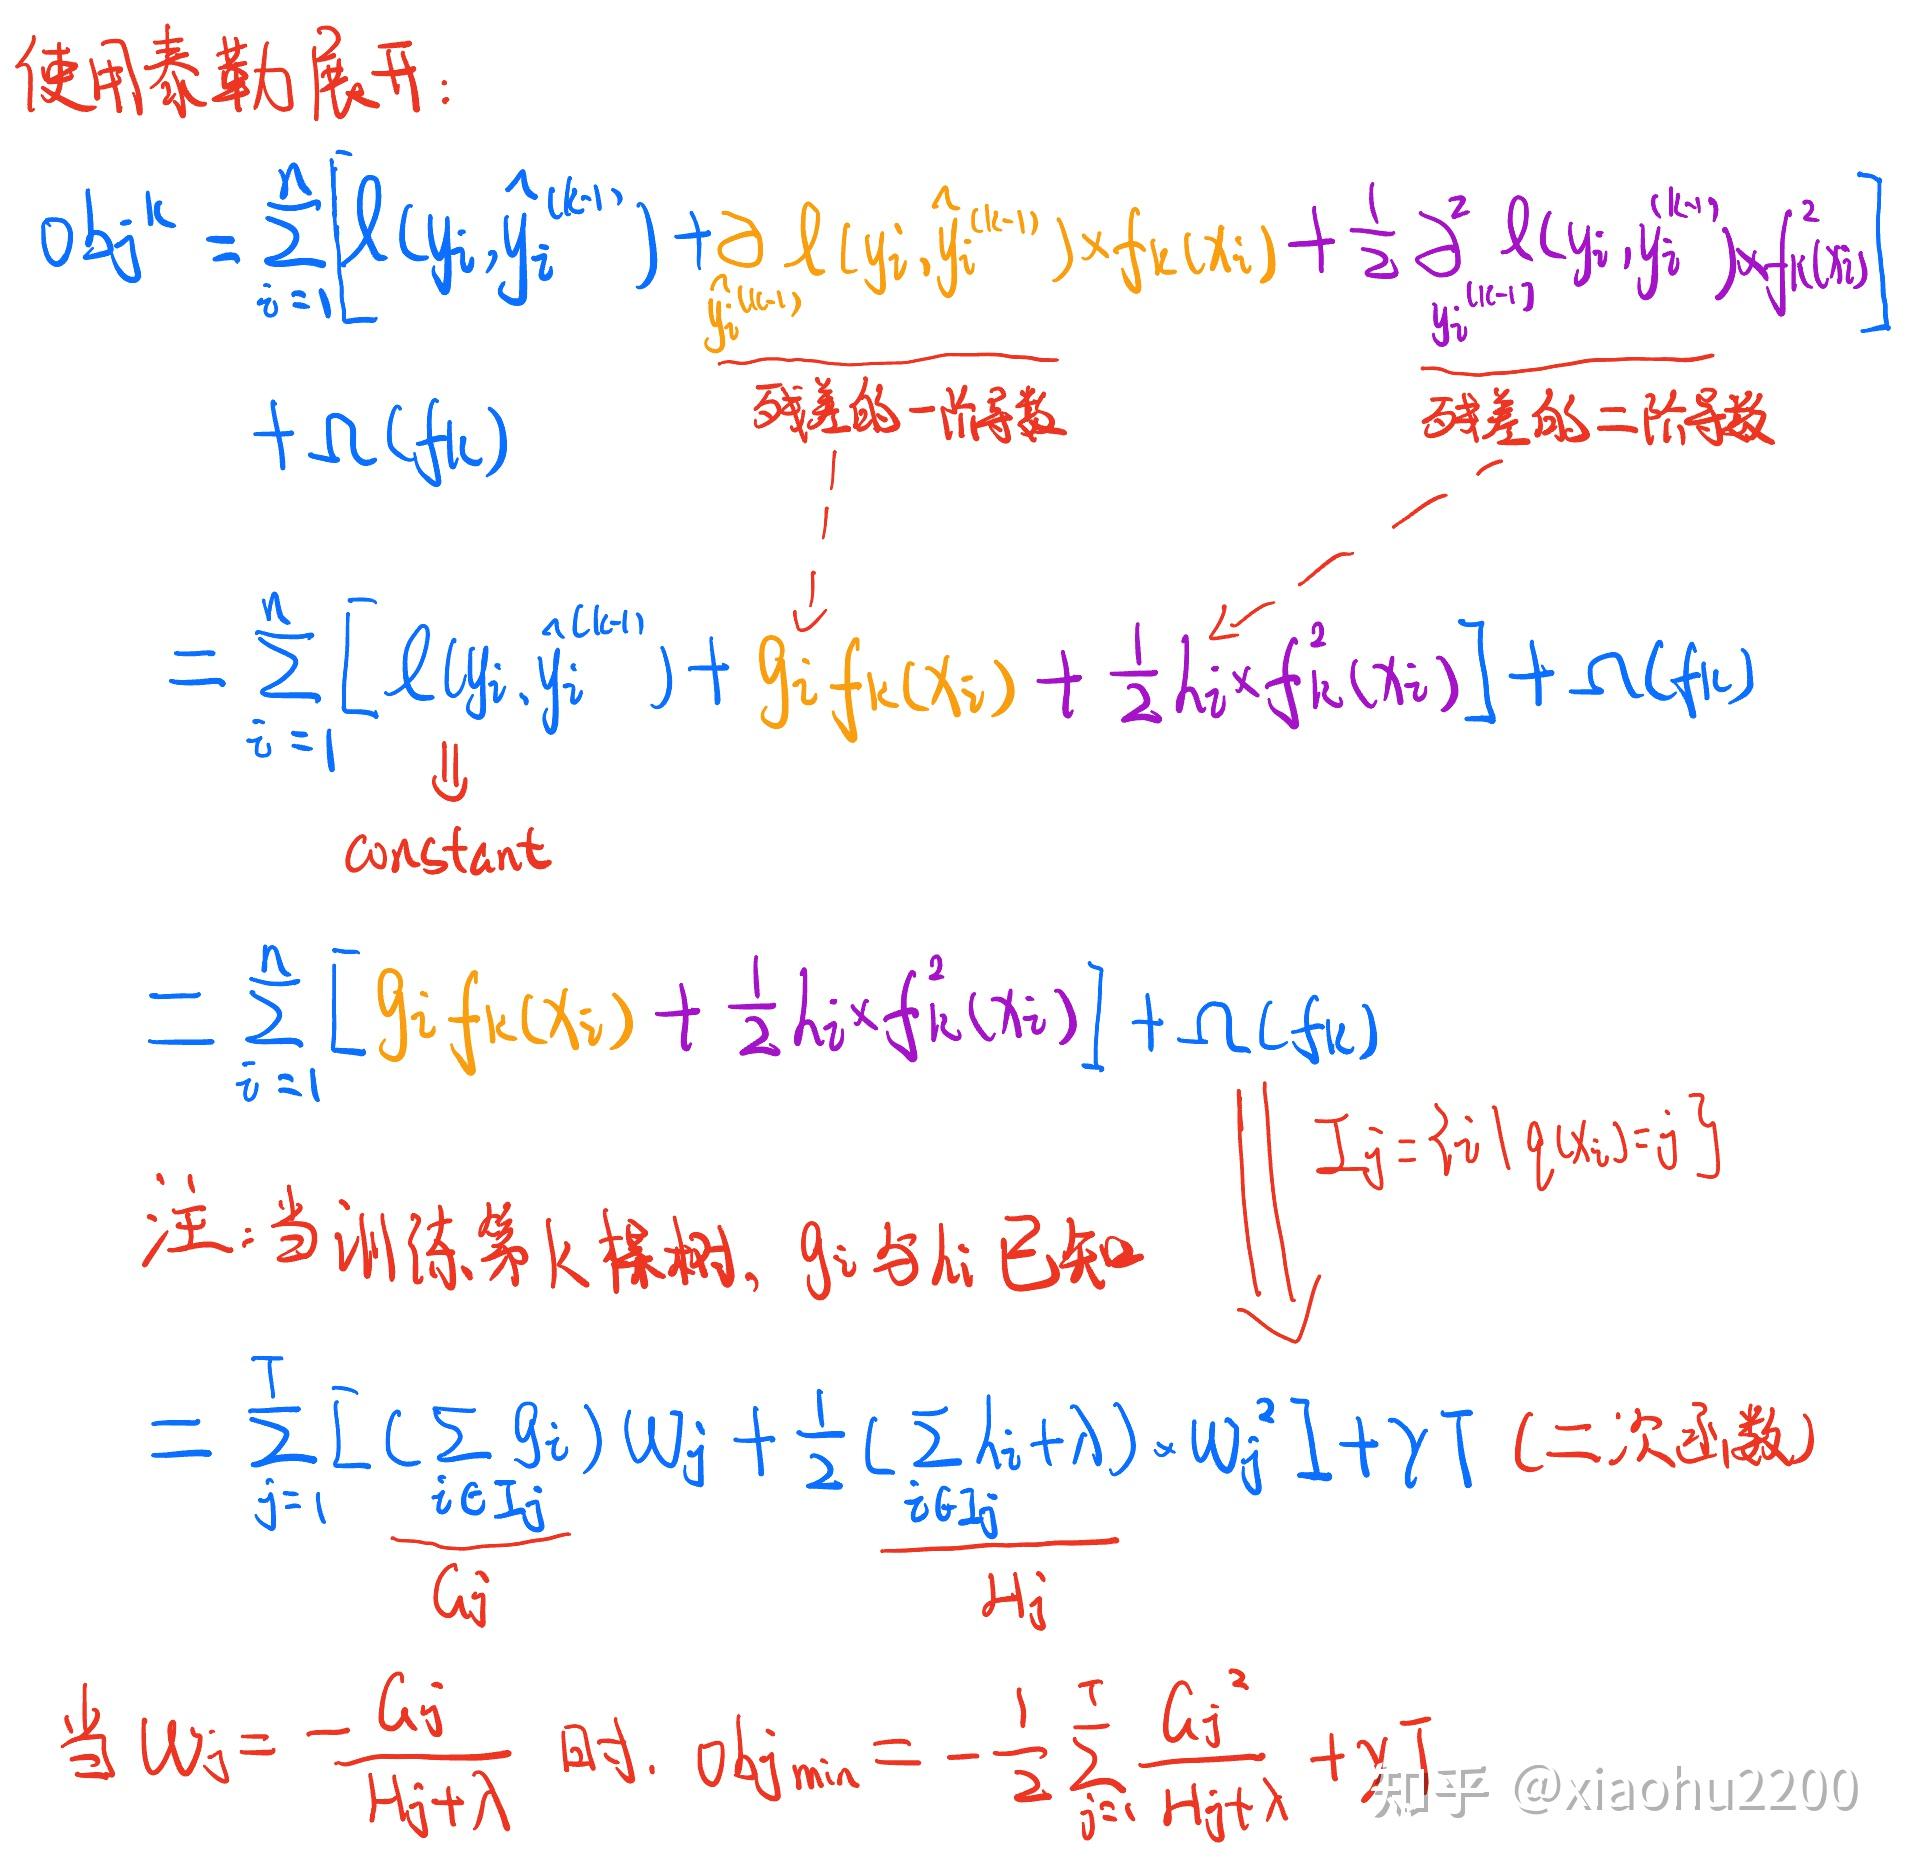 使用泰勒展开:
obj^k = Σ_{i=1}^{n} [ l(y_i, ŷ_i^{(k-1)}) + ∂_{ŷ_i^{(k-1)}} l(y_i, ŷ_i^{(k-1)}) × f_k(x_i) + 1/2 ∂²_{y_i^{(k-1)}} l(y_i, y_i^{(k-1)}) × f_k²(x_i) ]
残差的一阶导数 残差的二阶导数
+ Ω(f_k)
= Σ_{i=1}^{n} [ l(y_i, ŷ_i^{(k-1)}) + g_i f_k(x_i) + 1/2 h_i × f_k²(x_i) ] + Ω(f_k)
⇓
constant
= Σ_{i=1}^{n} [ g_i f_k(x_i) + 1/2 h_i × f_k²(x_i) ] + Ω(f_k)
I_j = {i | q(x_i) = j}
注:当训练第k棵树, g_i与h_i已知
= Σ_{j=1}^{T} [ (Σ_{i∈I_j} g_i) w_j + 1/2 (Σ_{i∈I_j} h_i + λ) × w_j² ] + γT (二次函数)
G_j H_j
当 w_j = - G_j / (H_j + λ) 时. obj_min = - 1/2 Σ_{j=1}^{T} G_j² / (H_j + λ) + γT
知乎 @xiaohu2200